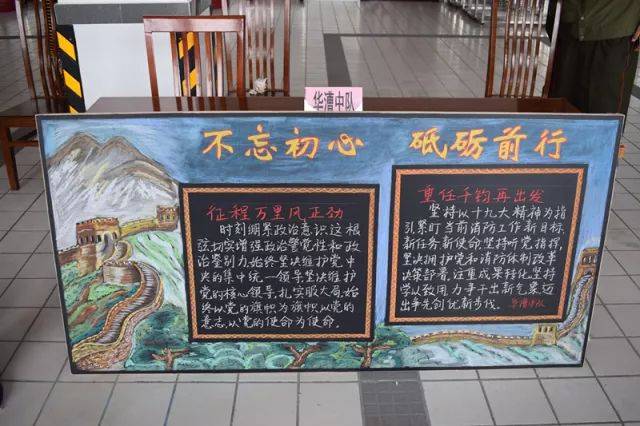 华漕中队
不忘初心 砥砺前行
征程万里风正劲
时刻绷紧政治意识这根
弦切实增强政治警觉性和政
治鉴别力,始终坚决维护党中
央的集中统一领导坚决维护
党的核心领导,扎实服大局,始
终以党的旗帜为旗帜,以党的
意志,以党的使命为使命。
重任千钧再出发
坚持以十九大精神为指
引紧盯当前消防工作新目标,
新任务新使命坚持听党指挥,
坚决拥护党和消防体制改革
决策部署,注重成果转化坚持
学以致用,力争干出新气象迈
出争先创优新步伐。华漕中队